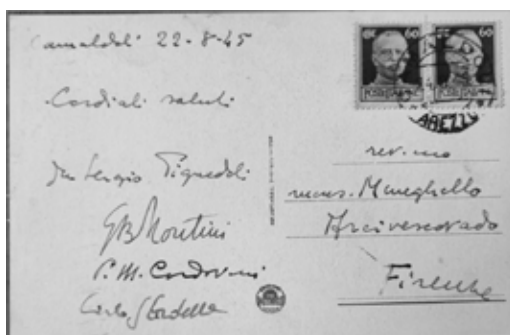 Camaldoli 22-8-45
Cordiali saluti
Don Sergio Pignedoli
GB Montini
P. M. Cordovani
Carlo
60 60
POSTE ITALIANE
AREZZO
rev.mo
mons. Meneghello
Arcivescovado
Firenze